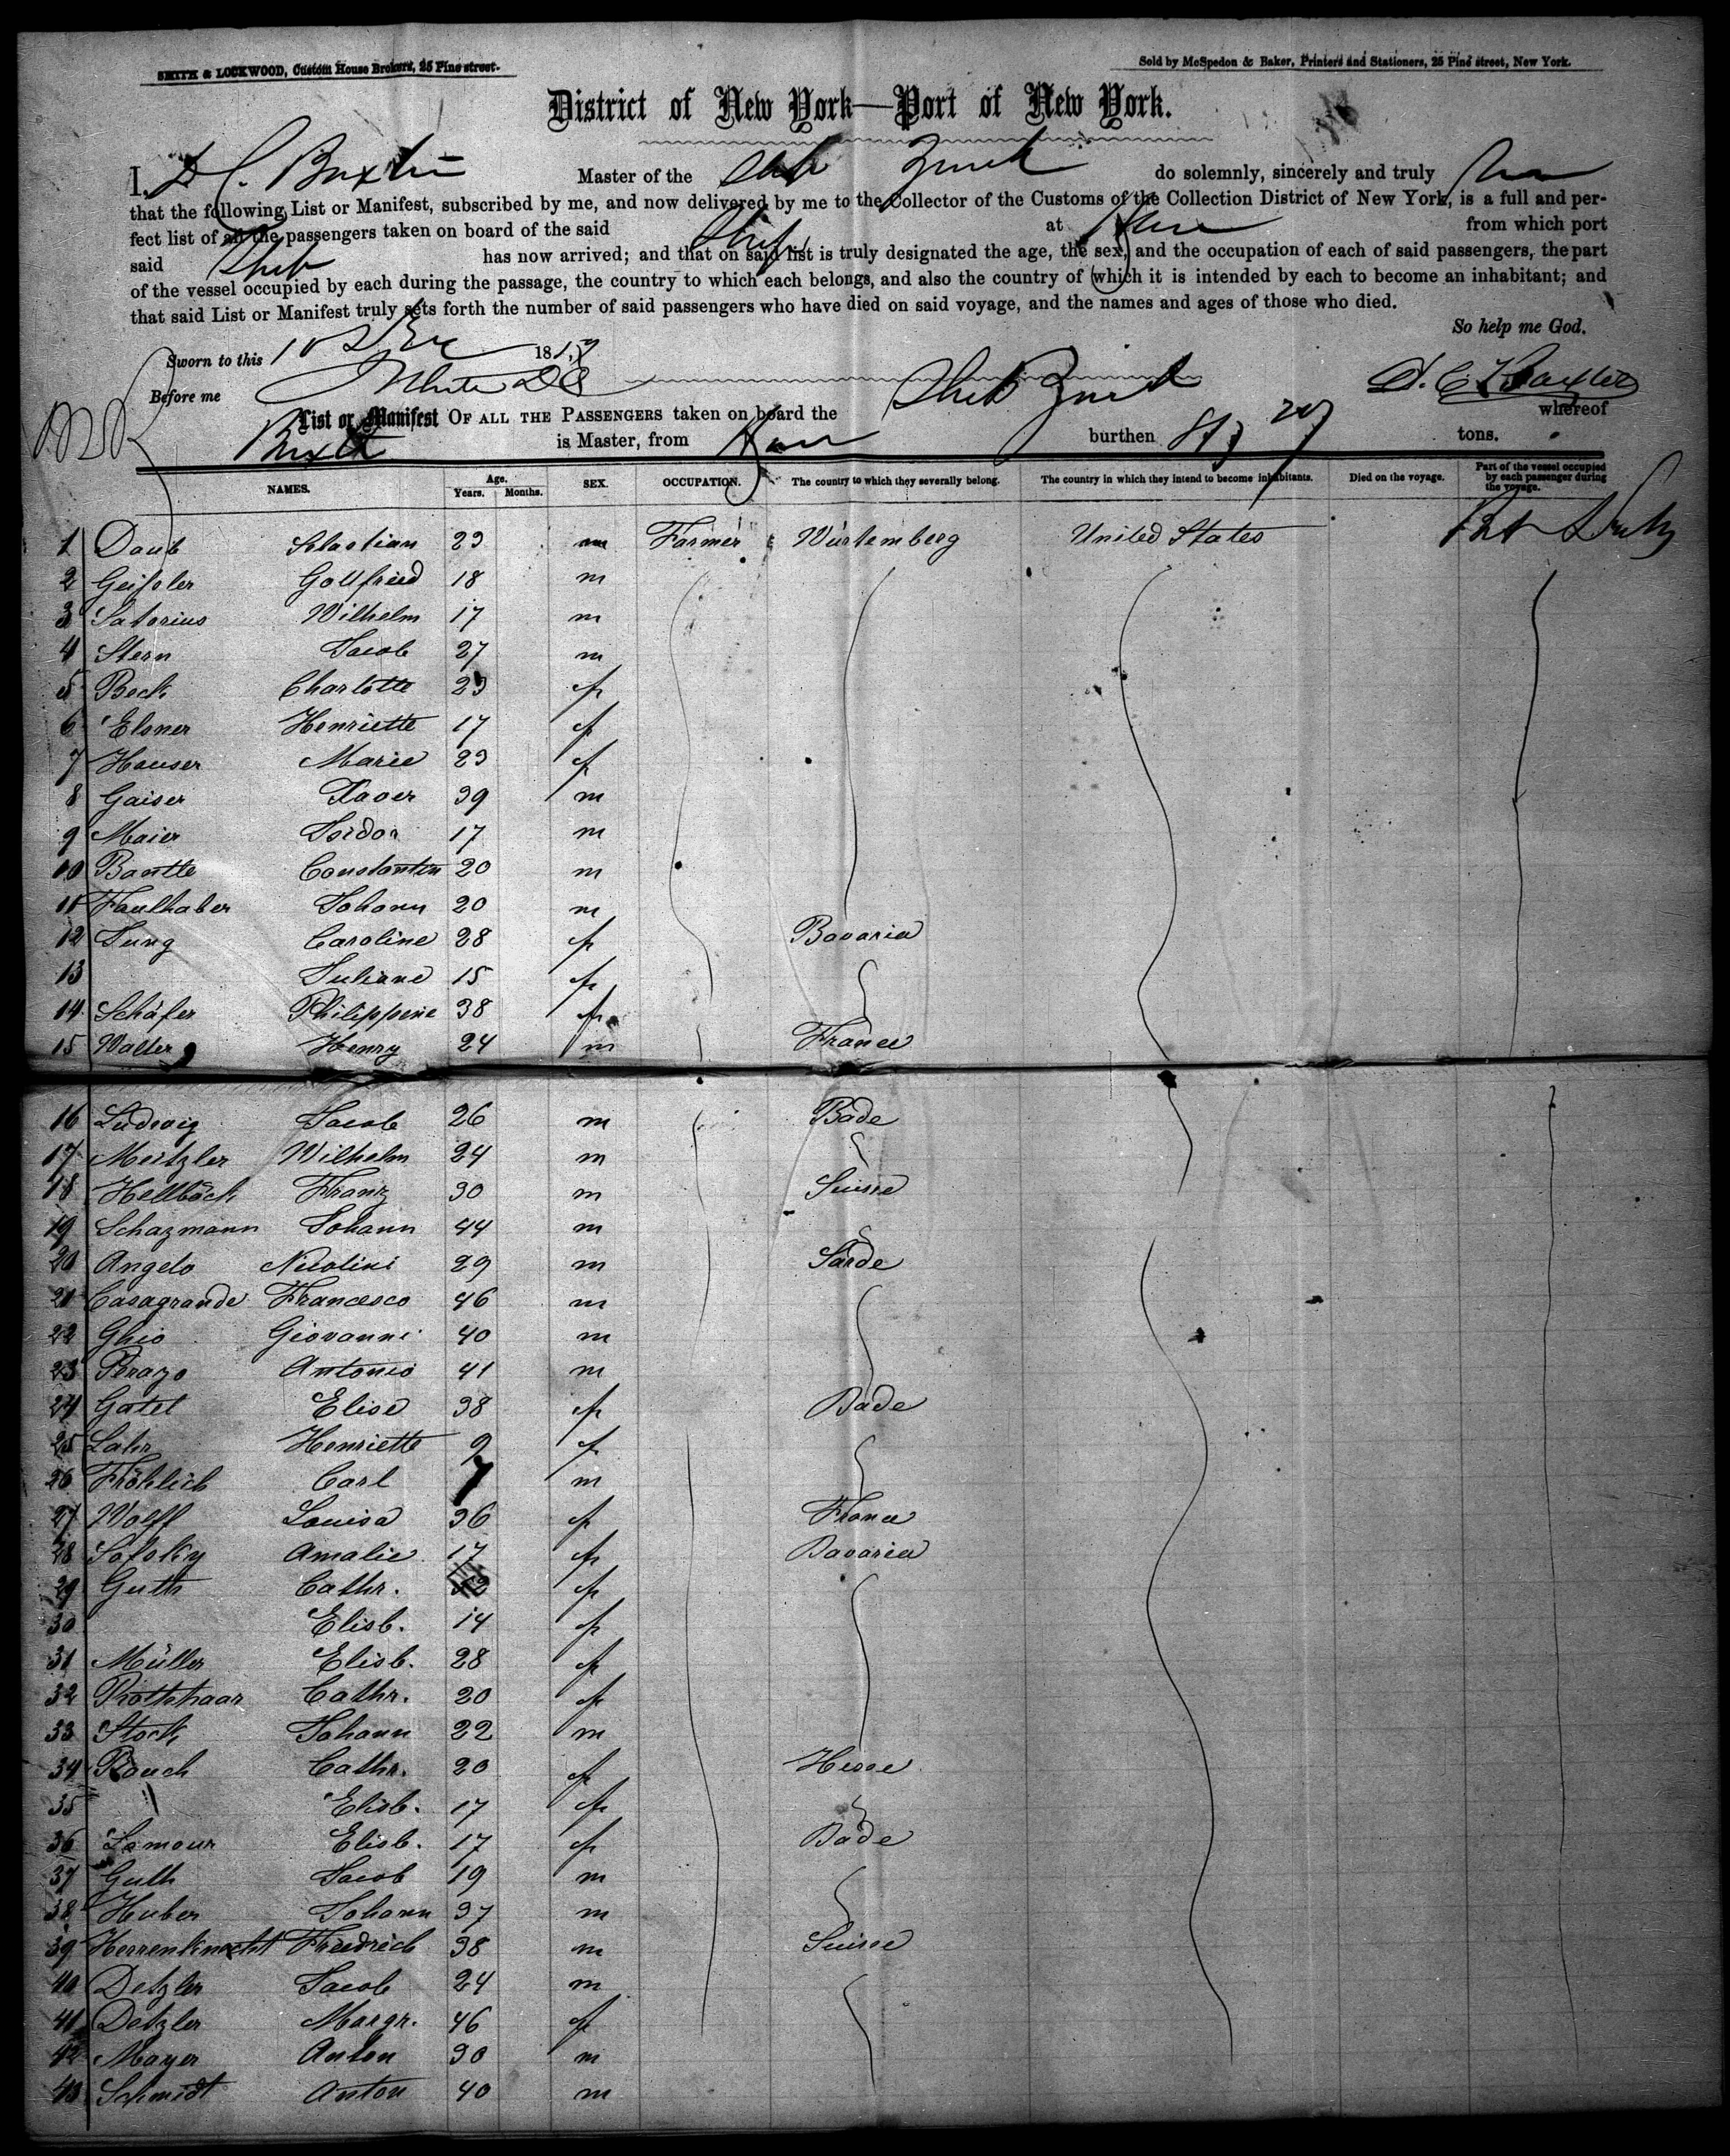 SMITH & LOCKWOOD, Custom House Brokers, 25 Pine street.
Sold by McSpedon & Baker, Printers and Stationers, 25 Pine street, New York.
District of New York—Port of New York.
I, D C. Baxter Master of the Ship Zurich do solemnly, sincerely and truly
that the following List or Manifest, subscribed by me, and now delivered by me to the Collector of the Customs of the Collection District of New York, is a full and per-
fect list of all the passengers taken on board of the said Ship at Havre from which port
said Ship has now arrived; and that on said list is truly designated the age, the sex, and the occupation of each of said passengers, the part
of the vessel occupied by each during the passage, the country to which each belongs, and also the country of which it is intended by each to become an inhabitant; and
that said List or Manifest truly sets forth the number of said passengers who have died on said voyage, and the names and ages of those who died.
So help me God.
Sworn to this 10 Dec 1857
Before me White D C Ship Zurich D. C Baxter
List or Manifest OF ALL THE PASSENGERS taken on board the whereof
Baxter is Master, from Havre burthen tons.
NAMES. Age. Years. Months. SEX. OCCUPATION. The country to which they severally belong. The country in which they intend to become inhabitants. Died on the voyage. Part of the vessel occupied by each passenger during the voyage.
1 Daub Sebastian 23 m Farmer Würtemberg United States
2 Geissler Gottfried 18 m
3 Satorius Wilhelm 17 m
4 Stern Jacob 27 m
5 Beck Charlotte 23 f
6 Elsner Henriette 17 f
7 Hauser Marie 23 f
8 Gaiser Xaver 39 m
9 Maier Isidor 17 m
10 Bantle Constantin 20 m
11 Faulhaber Johann 20 m
12 Jung Caroline 28 f Bavaria
13 Juliane 15 f
14 Schäfer Philippine 38 f
15 Walter Henry 24 m France
16 Ludwig Jacob 26 m Bade
17 Meitzler Wilhelm 24 m
18 Hellböck Franz 30 m Suisse
19 Schazmann Johann 44 m
20 Angelo Nicolini 29 m Sarde
21 Casagrande Francesco 46 m
22 Ghio Giovanni 40 m
23 Perazo Antonio 41 m
24 Gatel Elise 38 f Bade
25 Lahr Henriette 9 f
26 Fröhlich Carl 7 m
27 Wolff Louisa 36 f France
28 Sofsky Amalie 17 f Bavaria
29 Guth Cathr. 52 f
30 Elisb. 14 f
31 Müller Elisb. 28 f
32 Rottehaar Cathr. 20 f
33 Stock Johann 22 m
34 Rauch Cathr. 20 f Hesse
35 " Elisb. 17 f
36 Lamour Elisb. 17 f Bade
37 Guth Jacob 19 m
38 Huber Johann 37 m
39 Herrenknecht Friedrich 38 m Suisse
40 Detzler Jacob 24 m
41 Detzler Margr. 46 f
42 Mayer Anton 30 m
43 Schmidt Anton 40 m